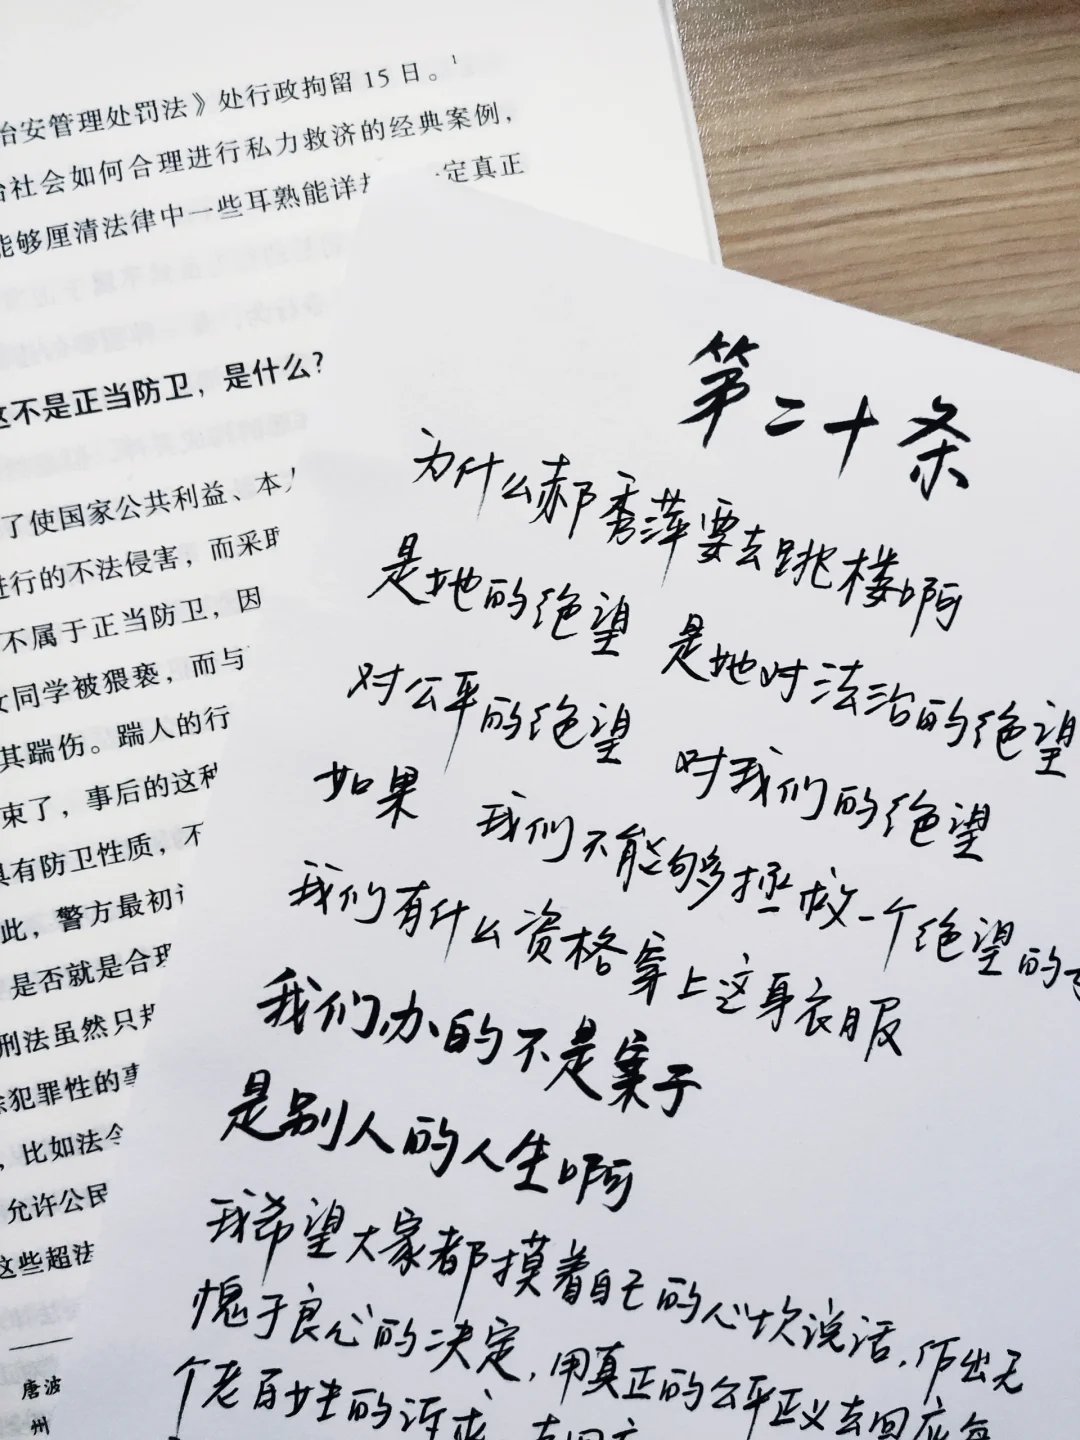 治安管理处罚法》处行政拘留 15 日。¹
社会如何合理进行私力救济的经典案例，
能够厘清法律中一些耳熟能详 定真正
这不是正当防卫，是什么？
了使国家公共利益、本人
进行的不法侵害，而采取
不属于正当防卫，因
女同学被猥亵，而与
其踹伤。踹人的行
束了，事后的这种
具有防卫性质，不
此，警方最初认
是否就是合理
刑法虽然只规
除犯罪性的事
，比如法令
允许公民
这些超法
唐波
州
第二十条
为什么郝秀萍要去跳楼啊
是她的绝望 是她对法治的绝望
对公平的绝望 对我们的绝望
如果 我们不能够拯救一个绝望的
我们有什么资格穿上这身衣服
我们办的不是案子
是别人的人生啊
我希望大家都摸着自己的心坎说话，作出无
愧于良心的决定，用真正的公平正义去回应每
个老百姓的诉求，去回应